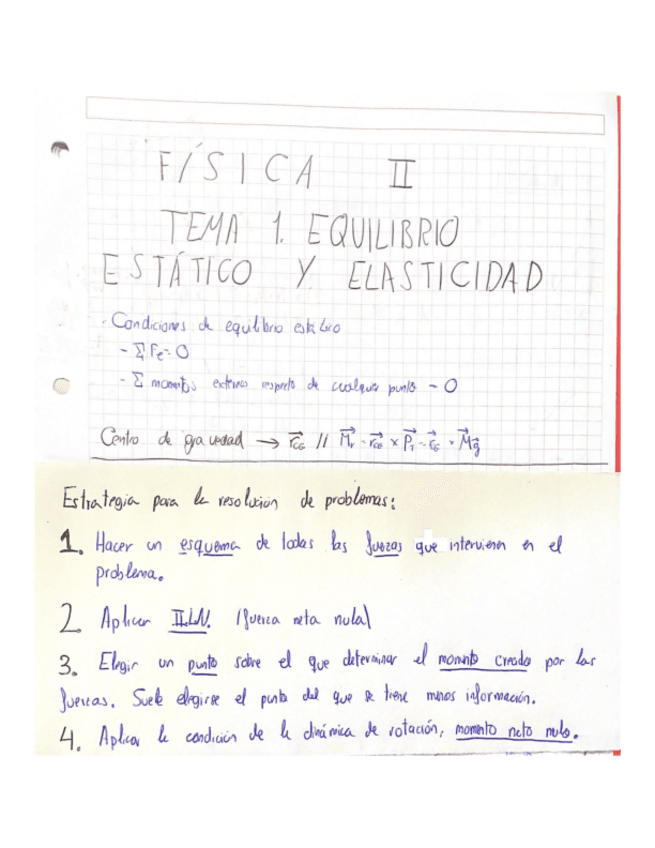 FÍSICA II
TEMA 1. EQUILIBRIO
ESTÁTICO Y ELASTICIDAD
· Condiciones de equilibrio estático
- ∑ Fe = 0
- ∑ momentos externos respecto de cualquier punto = 0
Centro de gravedad → r⃗CG // M⃗r = r⃗CG × P⃗T = r⃗G × M⃗g
Estrategia para la resolución de problemas:
1. Hacer un esquema de todas las fuerzas que intervienen en el
problema.
2. Aplicar II.L.N. (fuerza neta nula)
3. Elegir un punto sobre el que determinar el momento creado por las
fuerzas. Suele elegirse el punto del que se tiene menos información.
4. Aplicar la condición de la dinámica de rotación, momento neto nulo.